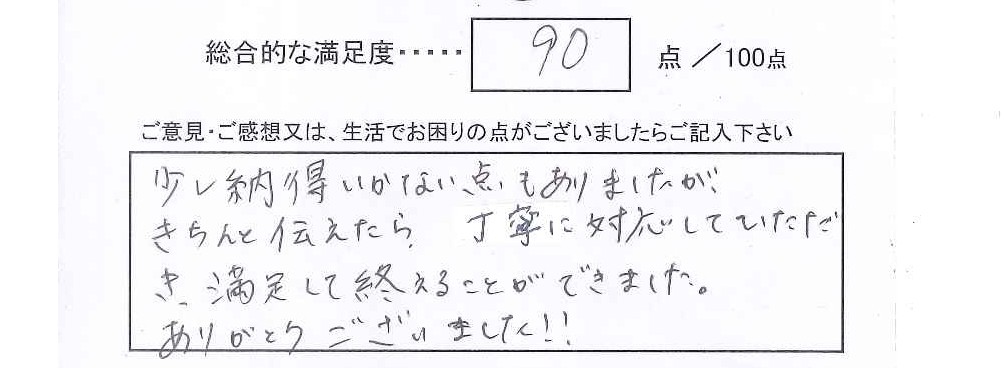 総合的な満足度‥‥‥ 90 点 ／100点
ご意見・ご感想又は、生活でお困りの点がございましたらご記入下さい
少し納得いかない点もありましたが、
きちんと伝えたら、丁寧に対応していただ
き、満足して終えることができました。
ありがとうございました!!